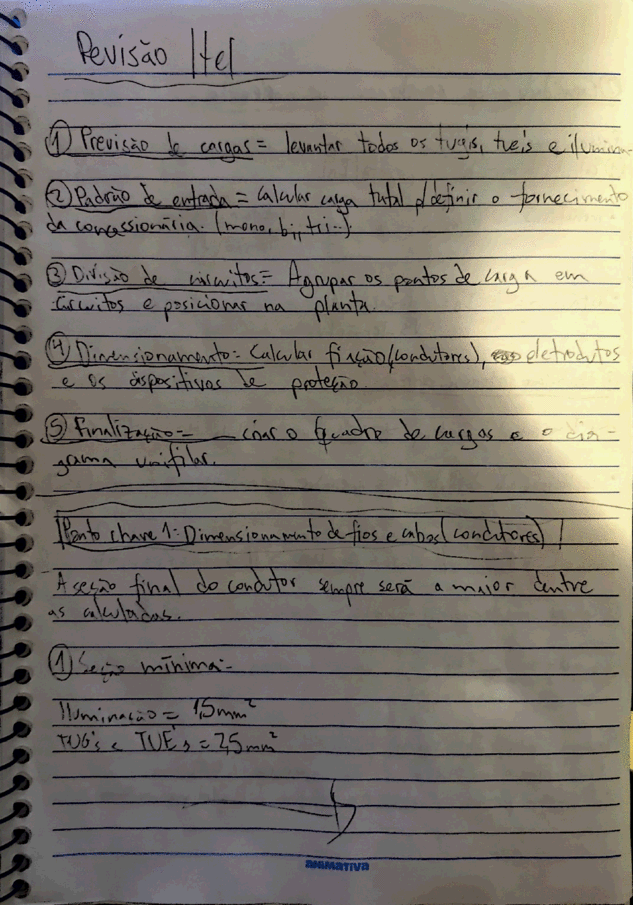 Revisão Itel
① Previsão de cargas = levantar todos os tug's, tue's e ilumina-
② Padrão de entrada = Calcular carga total p/ definir o fornecimento
da concessionária. (mono, bi, tri...)
③ Divisão de circuitos = Agrupar os pontos de carga em
circuitos e posicionar na planta.
④ Dimensionamento = Calcular fiação (condutores), eletrodutos
e os dispositivos de proteção.
⑤ Finalização = criar o quadro de cargas e o dia-
grama unifilar.
Ponto chave 1: Dimensionamento de fios e cabos (condutores)
A seção final do condutor sempre será a maior dentre
as calculadas.
① Seção mínima:
Iluminação = 1,5mm²
TUG's e TUE's = 2,5mm²